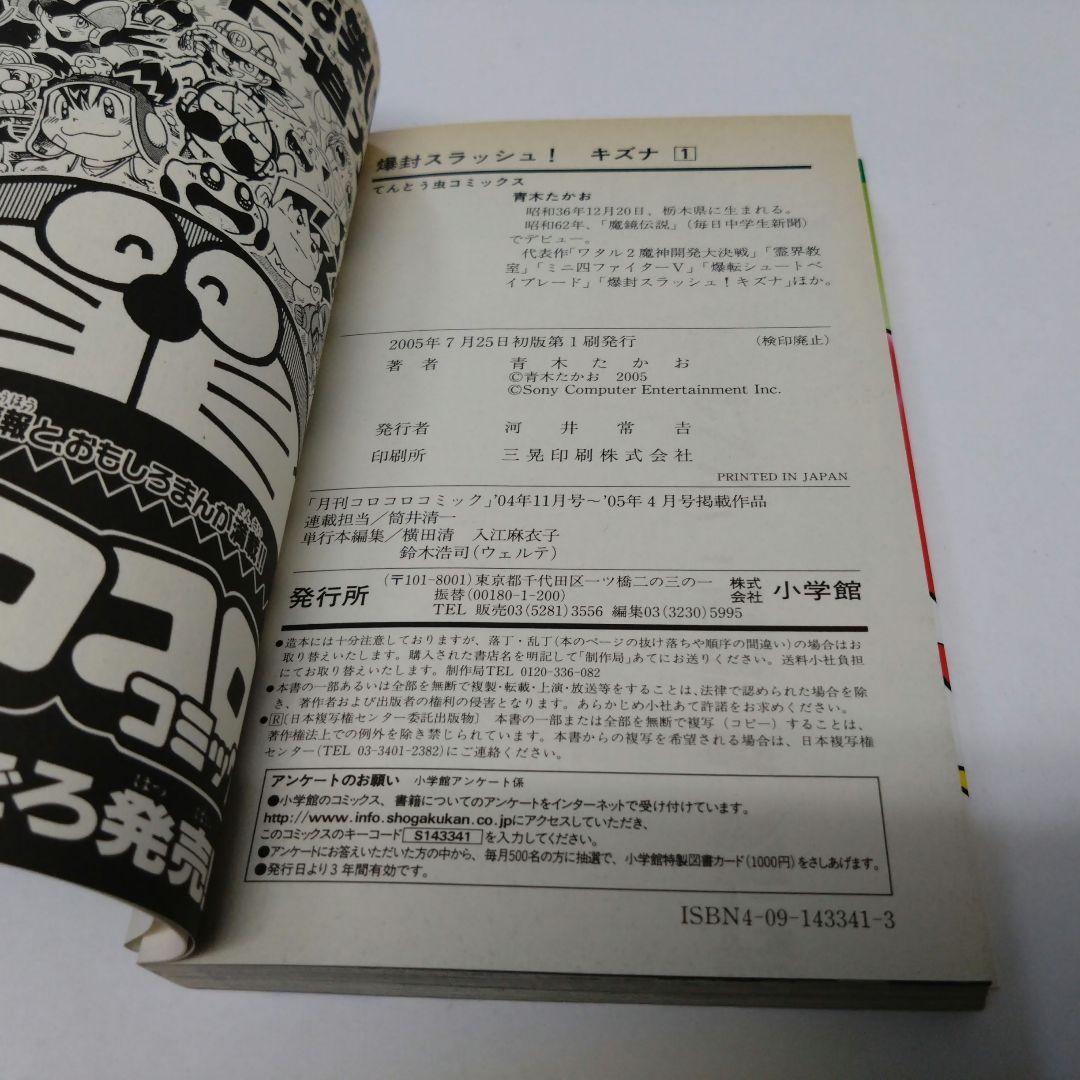 報と、おもしろまんが満載!!
コロ
コミック
ごろ発売
爆封スラッシュ! キズナ 1
てんとう虫コミックス
青木たかお
昭和36年12月20日、栃木県に生まれる。
昭和62年、「魔鏡伝説」(毎日中学生新聞)
でデビュー。
代表作「ワタル2魔神開発大決戦」「霊界教
室」「ミニ四ファイターV」「爆転シュートベ
イブレード」「爆封スラッシュ!キズナ」ほか。
2005年7月25日初版第1刷発行 (検印廃止)
著者 青木たかお
©青木たかお 2005
©Sony Computer Entertainment Inc.
発行者 河井常吉
印刷所 三晃印刷株式会社
PRINTED IN JAPAN
「月刊コロコロコミック」'04年11月号〜'05年4月号掲載作品
連載担当/筒井清一
単行本編集/横田清 入江麻衣子
鈴木浩司(ウェルテ)
発行所 (〒101-8001)東京都千代田区一ツ橋二の三の一 株式会社 小学館
振替(00180-1-200)
TEL 販売03(5281)3556 編集03(3230)5995
●造本には十分注意しておりますが、落丁・乱丁(本のページの抜け落ちや順序の間違い)の場合はお
取り替えいたします。購入された書店名を明記して「制作局」あてにお送りください。送料小社負担
にてお取り替えいたします。制作局TEL 0120-336-082
●本書の一部あるいは全部を無断で複製・転載・上演・放送等をすることは、法律で認められた場合を除
き、著作者および出版者の権利の侵害となります。あらかじめ小社あて許諾をお求めください。
●R〔日本複写権センター委託出版物〕 本書の一部または全部を無断で複写(コピー)することは、
著作権法上での例外を除き禁じられています。本書からの複写を希望される場合は、日本複写権
センター(TEL 03-3401-2382)にご連絡ください。
アンケートのお願い 小学館アンケート係
●小学館のコミックス、書籍についてのアンケートをインターネットで受け付けています。
http://www.info.shogakukan.co.jpにアクセスしていただき、
このコミックスのキーコード S143341 を入力してください。
●アンケートにお答えいただいた方の中から、毎月500名の方に抽選で、小学館特製図書カード(1000円)をさしあげます。
●発行日より3年間有効です。
ISBN4-09-143341-3